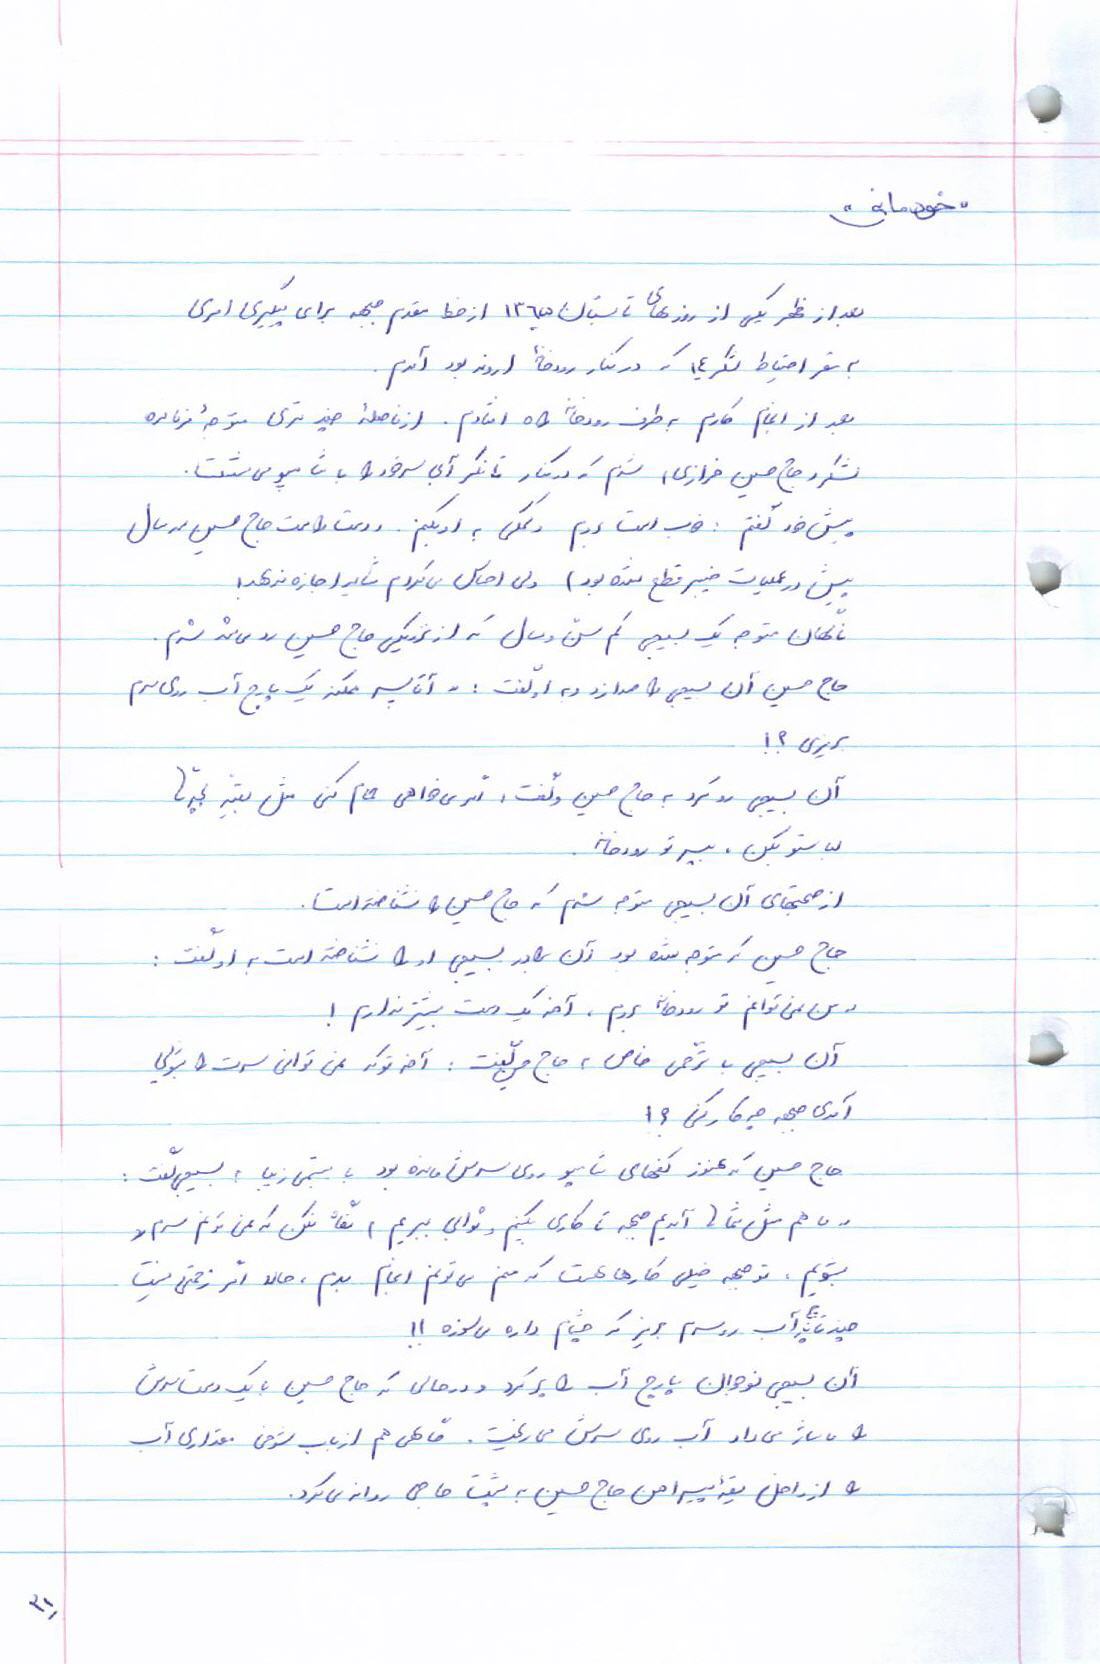 «خودمانی»
بعد از ظهر یکی از روزهای تابستان ۱۳۶۵ از خط مقدم جبهه برای پیگیری امری
به مقر احتیاط لشگر ۱۴ که در کنار رودخانهٔ اروند بود آمدم.
بعد از انجام کارم به طرف رودخانه راه افتادم. از فاصلهٔ چند متری متوجهٔ فرمانده
لشگر «حاج حسین خرازی» شدم که در کنار تانکر آبی سر خود را با شامپو می‌شست.
پیش خود گفتم : خوب است بروم و کمکی به او بکنم. (دست راست حاج حسین سه سال
پیش در عملیات خیبر قطع شده بود) ولی احساس می‌کردم شاید اجازه ندهد!
ناگهان متوجه یک بسیجی کم سنّ و سال که از نزدیکی حاج حسین رد می‌شد شدم.
حاج حسین آن بسیجی را صدا زد و به او گفت : «آقا پسر ممکنه یک پارچ آب روی سرم
بریزی ؟!
آن بسیجی رو کرد به حاج حسین و گفت : اگر می‌خواهی حمام کنی مثل بقیّه بچّه‌ها
لباستو بکن ، بپر تو رودخانه.
از صحبتهای آن بسیجی متوجه شدم که حاج حسین را نشناخته است.
حاج حسین که متوجه شده بود آن برادر بسیجی او را نشناخته است به او گفت :
«من نمی‌توانم تو رودخانه بروم ، آخه یک دست بیشتر ندارم !
آن بسیجی با ترحّمی خاص به حاجی گفت : آخه تو که نمی توانی سرت را بشوئی
آمدی جبهه چه کار کنی ؟!
حاج حسین که هنوز کفهای شامپو روی سرش مانده بود با تبسّمی زیبا به بسیجی گفت :
«ما هم مثل شماها آمدیم جبهه تا کاری بکنیم و ثوابی ببریم ، نگاه نکن که نمی تونم سرم رو
بشویم ، تو جبهه خیلی کارها هست که منم می‌تونم انجام بدم ، حالا اگر زحمتی نیست
چند تا پارچ آب رو سرم بریز که چشام داره می‌سوزه !!
آن بسیجی نوجوان پارچ آب را پر کرد و در حالی که حاج حسین با یک دست سرش
را ماساژ می‌داد آب روی سرش می‌ریخت. گاهی هم از باب شوخی مقداری آب
را از داخل یقهٔ پیراهن حاج حسین به پشت حاجی روانه می‌کرد.